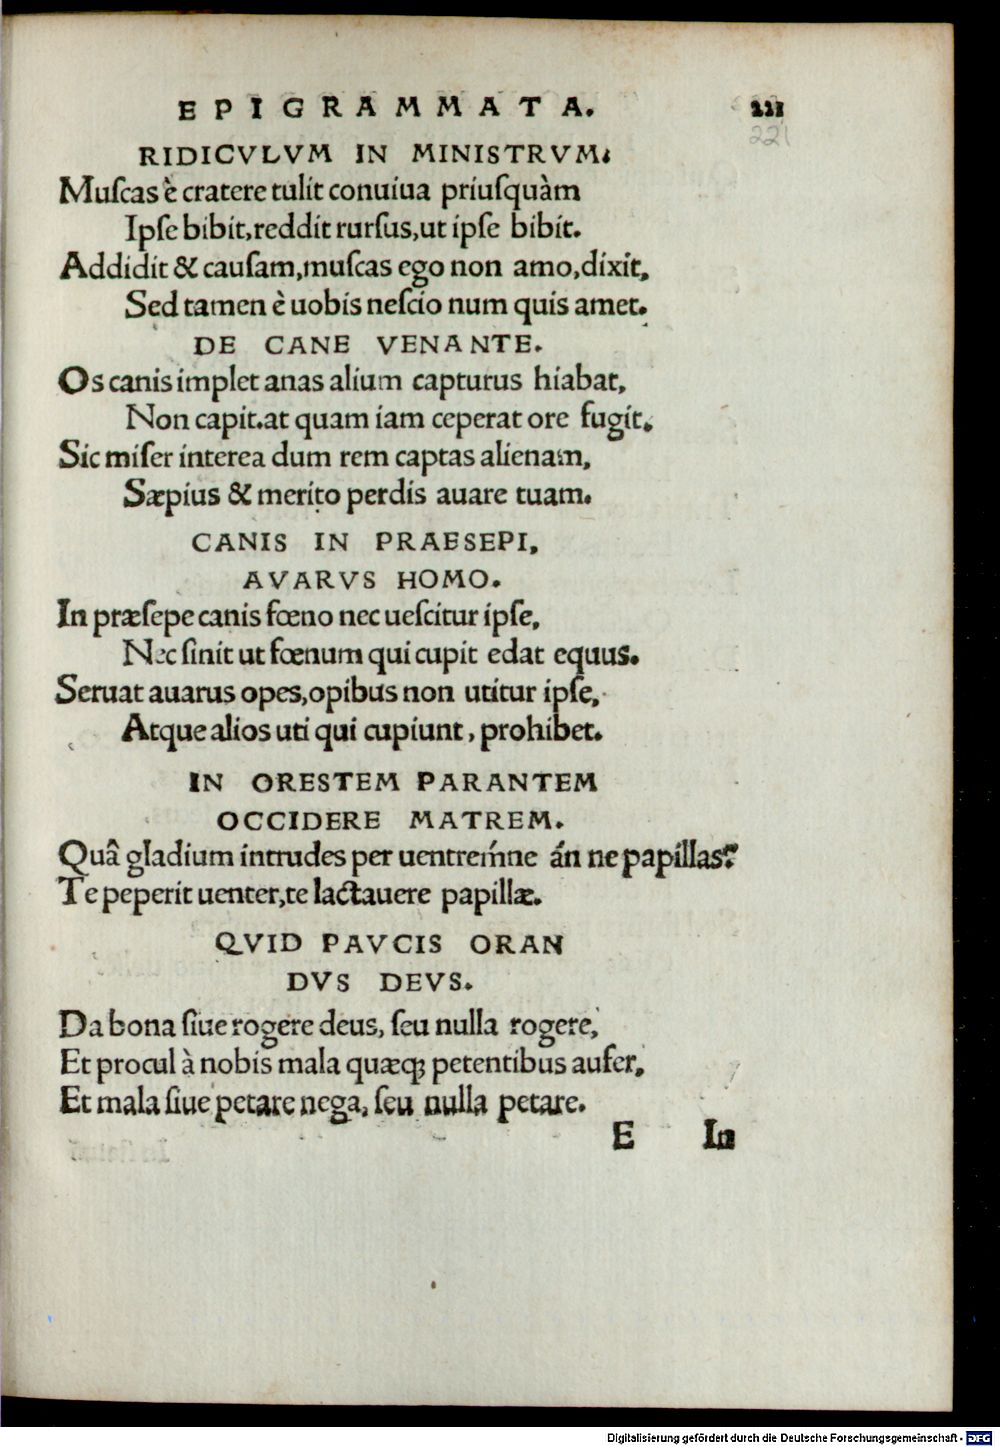 EPIGRAMMATA. 221
221
RIDICVLVM IN MINISTRVM.
Muſcas è cratere tulit conuiua priuſquàm
Ipſe bibit, reddit rurſus, ut ipſe bibit.
Addidit & cauſam, muſcas ego non amo, dixit,
Sed tamen è uobis neſcio num quis amet.
DE CANE VENANTE.
Os canis implet anas alium capturus hiabat,
Non capit. at quam iam ceperat ore fugit.
Sic miſer interea dum rem captas alienam,
Sæpius & merito perdis auare tuam.
CANIS IN PRAESEPI,
AVARVS HOMO.
In præſepe canis fœno nec ueſcitur ipſe,
Nec ſinit ut fœnum qui cupit edat equus.
Seruat auarus opes, opibus non utitur ipſe,
Atque alios uti qui cupiunt, prohibet.
IN ORESTEM PARANTEM
OCCIDERE MATREM.
Quâ gladium intrudes per uentreḿne án ne papillas?
Te peperit uenter, te lactauere papillæ.
QVID PAVCIS ORAN
DVS DEVS.
Da bona ſiue rogere deus, ſeu nulla rogere,
Et procul à nobis mala quæq; petentibus aufer,
Et mala ſiue petare nega, ſeu nulla petare.
E In
Digitalisierung gefördert durch die Deutsche Forschungsgemeinschaft - DFG